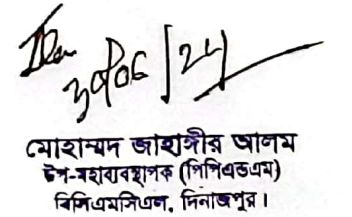 মোহাম্মদ জাহাঙ্গীর আলম
উপ-মহাব্যবস্থাপক (পিপিএন্ডএম)
বিসিএমসিএল, দিনাজপুর।